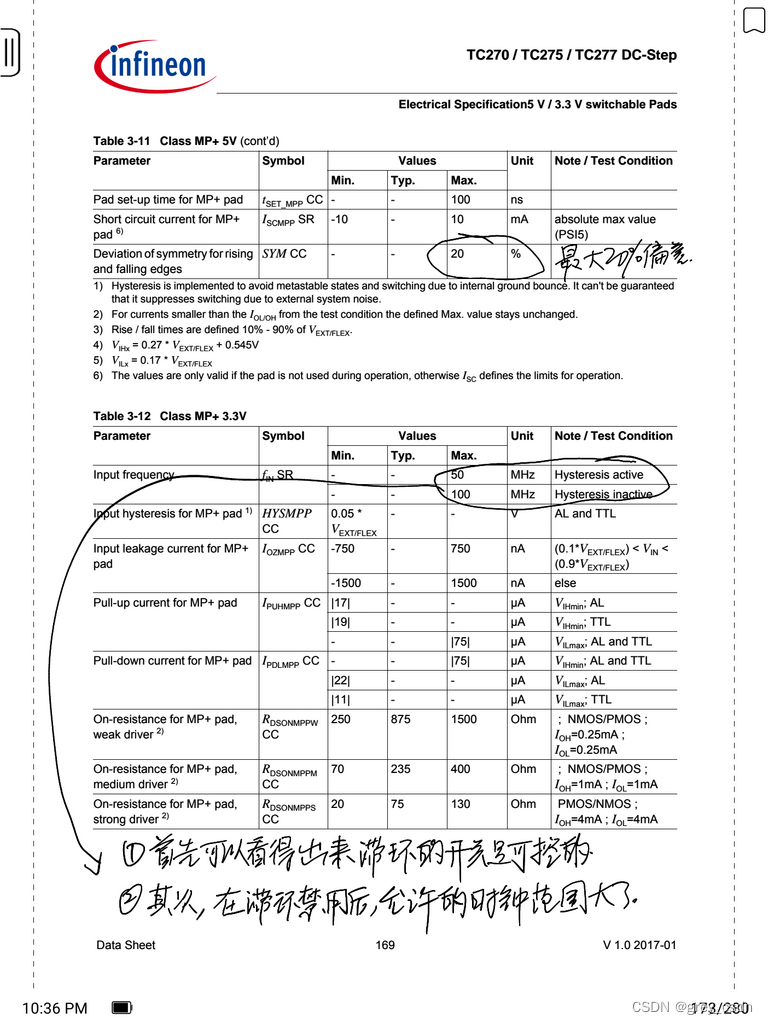 infineon
TC270 / TC275 / TC277 DC-Step
Electrical Specification5 V / 3.3 V switchable Pads
Table 3-11 Class MP+ 5V (cont'd)
Parameter Symbol Values Unit Note / Test Condition
Min. Typ. Max.
Pad set-up time for MP+ pad tSET_MPP CC - - 100 ns
Short circuit current for MP+ pad 6) ISCMPP SR -10 - 10 mA absolute max value (PSI5)
Deviation of symmetry for rising and falling edges SYM CC - - 20 % 最大20%偏差.
1) Hysteresis is implemented to avoid metastable states and switching due to internal ground bounce. It can't be guaranteed
that it suppresses switching due to external system noise.
2) For currents smaller than the IOL/OH from the test condition the defined Max. value stays unchanged.
3) Rise / fall times are defined 10% - 90% of VEXT/FLEX.
4) VIHx = 0.27 * VEXT/FLEX + 0.545V
5) VILx = 0.17 * VEXT/FLEX
6) The values are only valid if the pad is not used during operation, otherwise ISC defines the limits for operation.
Table 3-12 Class MP+ 3.3V
Parameter Symbol Values Unit Note / Test Condition
Min. Typ. Max.
Input frequency fIN SR - - 50 MHz Hysteresis active
- - 100 MHz Hysteresis inactive
Input hysteresis for MP+ pad 1) HYSMPP CC 0.05 * VEXT/FLEX - - V AL and TTL
Input leakage current for MP+ pad IOZMPP CC -750 - 750 nA (0.1*VEXT/FLEX) < VIN < (0.9*VEXT/FLEX)
-1500 - 1500 nA else
Pull-up current for MP+ pad IPUHMPP CC |17| - - µA VIHmin; AL
|19| - - µA VIHmin; TTL
- - |75| µA VILmax; AL and TTL
Pull-down current for MP+ pad IPDLMPP CC - - |75| µA VIHmin; AL and TTL
|22| - - µA VILmax; AL
|11| - - µA VILmax; TTL
On-resistance for MP+ pad, weak driver 2) RDSONMPPW CC 250 875 1500 Ohm ; NMOS/PMOS ; IOH=0.25mA ; IOL=0.25mA
On-resistance for MP+ pad, medium driver 2) RDSONMPPM CC 70 235 400 Ohm ; NMOS/PMOS ; IOH=1mA ; IOL=1mA
On-resistance for MP+ pad, strong driver 2) RDSONMPPS CC 20 75 130 Ohm PMOS/NMOS ; IOH=4mA ; IOL=4mA
①首先可以看得出来滞环的开关是可控的
②其次,在滞环禁用后,允许的时钟范围大了.
Data Sheet 169 V 1.0 2017-01
10:36 PM 173/280